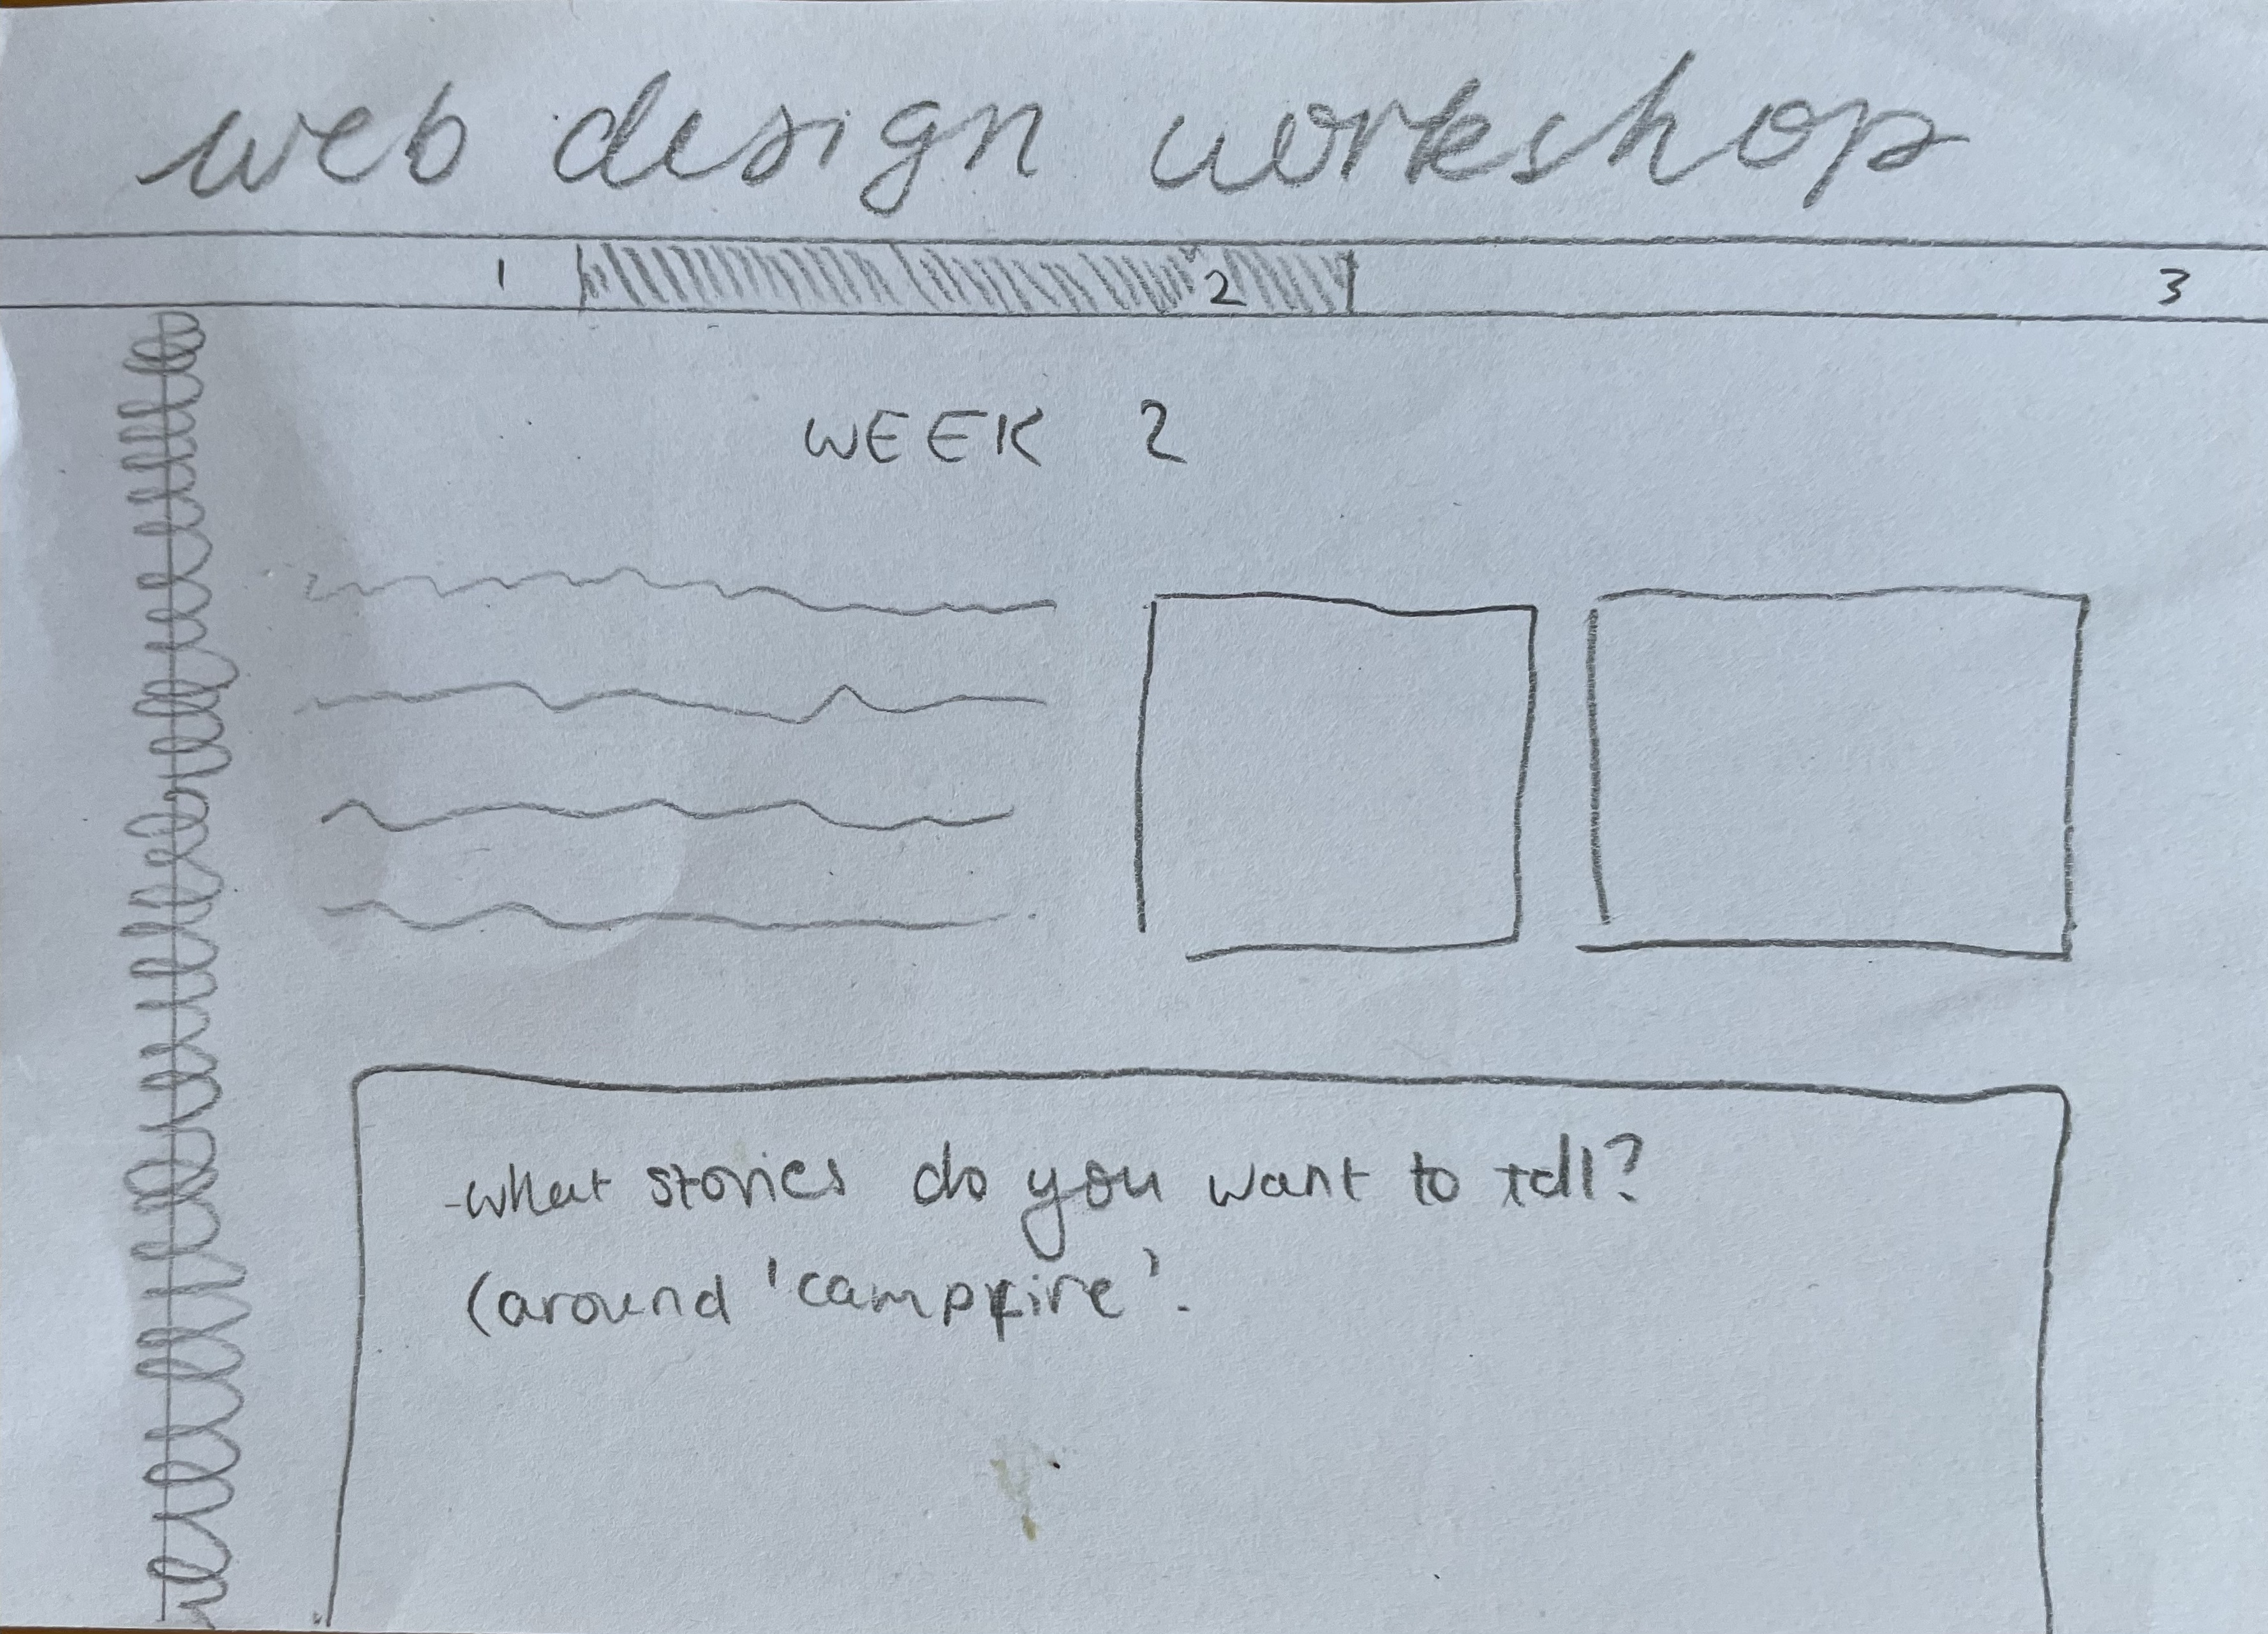 web design workshop
1 2 3
WEEK 2
- What stories do you want to tell?
(around 'campfire'.